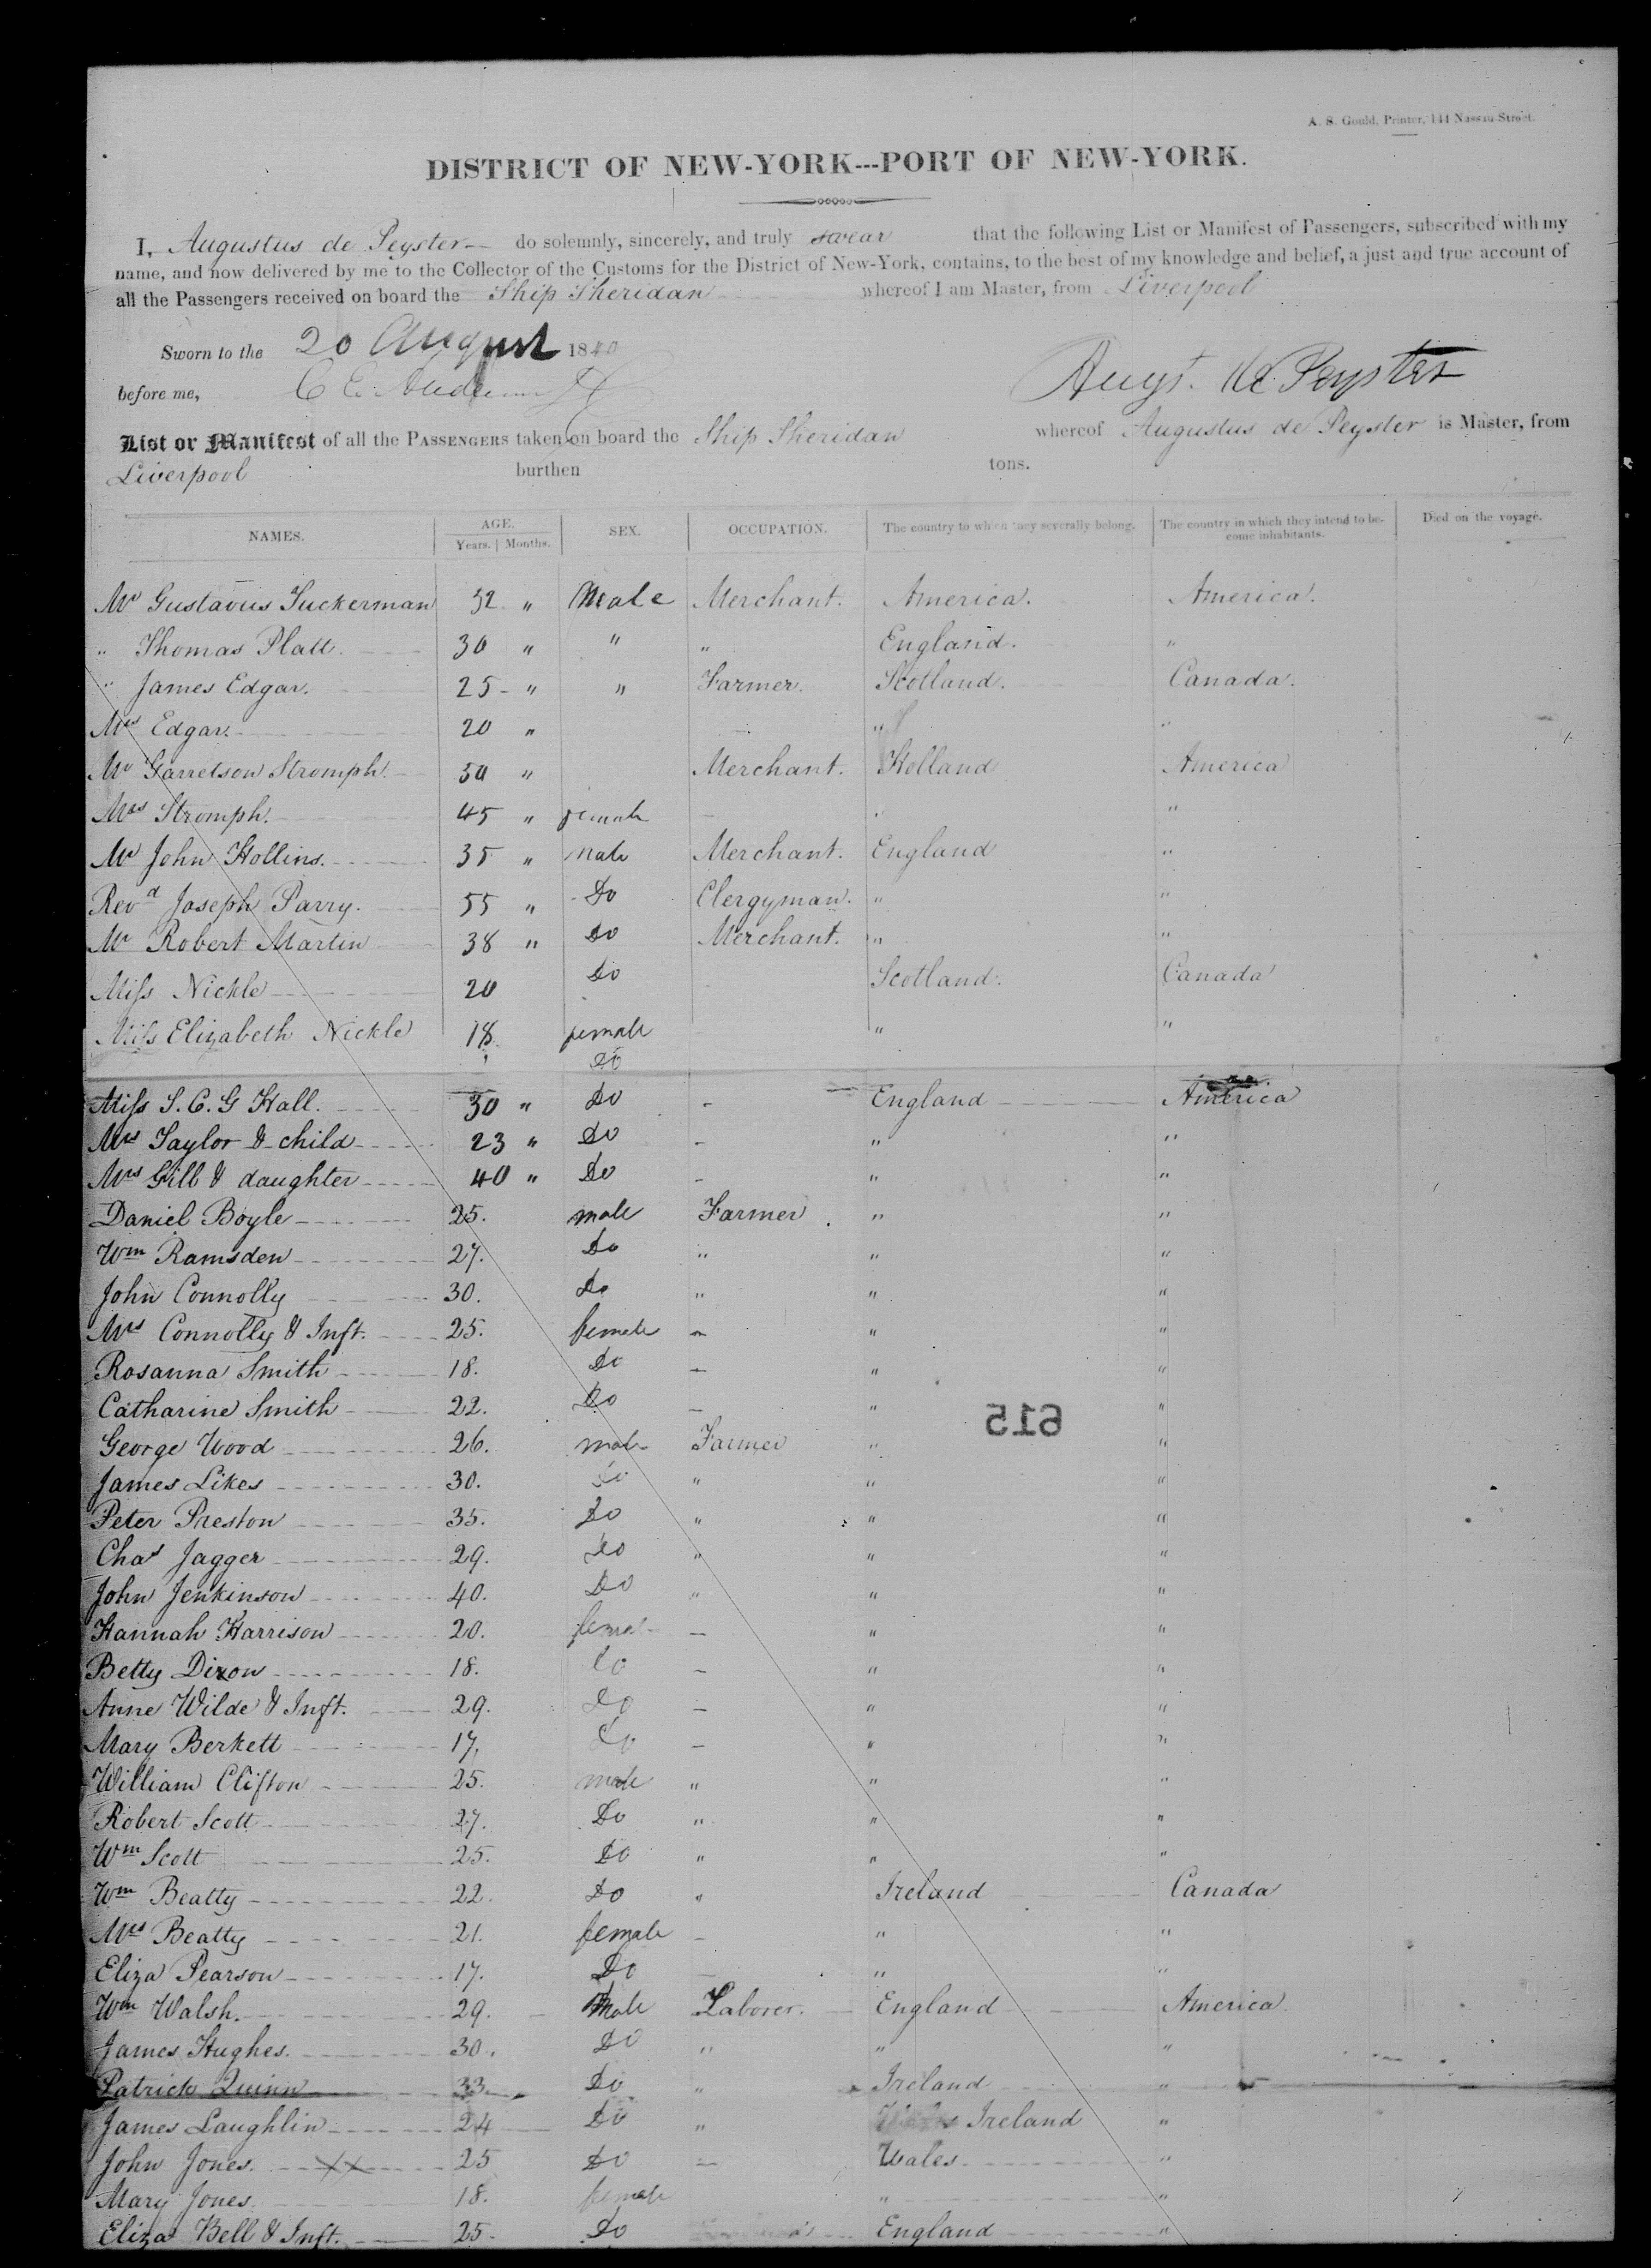 A. S. Gould, Printer, 144 Nassau-Street.
DISTRICT OF NEW-YORK---PORT OF NEW-YORK.
I, Augustus de Peyster do solemnly, sincerely, and truly swear that the following List or Manifest of Passengers, subscribed with my
name, and now delivered by me to the Collector of the Customs for the District of New-York, contains, to the best of my knowledge and belief, a just and true account of
all the Passengers received on board the Ship Sheridan whereof I am Master, from Liverpool
Sworn to the 20 August 1840
before me, C E
Augt. de Peyster
List or Manifest of all the PASSENGERS taken on board the Ship Sheridan whereof Augustus de Peyster is Master, from
Liverpool burthen tons.
NAMES. AGE. Years. | Months. SEX. OCCUPATION. The country to which they severally belong. The country in which they intend to become inhabitants. Died on the voyage.
Mr Gustavus Tuckerman 52 " Male Merchant. America. America.
" Thomas Platt. 30 " " " England. "
" James Edgar. 25 - " " Farmer. Scotland. Canada.
Mrs Edgar. 20 " " "
Mr Garretson Stromph. 50 " Merchant. Holland America
Mrs Stromph. 45 " female - " "
Mr John Hollins. 35 " Male Merchant. England "
Revd Joseph Parry. 55 " Do Clergyman. " "
Mr Robert Martin 38 " Do Merchant. " "
Miss Nickle 20 Do Scotland. Canada
Miss Elizabeth Nickle 18 female - " "
Do
Miss S. C. G Hall. 30 " Do - England America
Mrs Taylor & child 23 " Do - " "
Mrs Gill & daughter 40 " Do - " "
Daniel Boyle 25. male Farmer. " "
Wm Ramsden 27. Do " " "
John Connolly 30. Do " " "
Mrs Connolly & Inft. 25. female - " "
Rosanna Smith 18. Do - " "
Catharine Smith 22. Do - " "
615
George Wood 26. male Farmer " "
James Likes 30. Do " " "
Peter Preston 35. Do " " "
Chas Jagger 29. Do " " "
John Jenkinson 40. Do " " "
Hannah Harrison 20. female - " "
Betty Dixon 18. Do - " "
Anne Wilde & Inft. 29. Do - " "
Mary Berkett 17. Do - " "
William Clifton 25. male " " "
Robert Scott 27. Do " " "
Wm Scott 25. Do " " "
Wm Beatty 22. Do " Ireland Canada
Mrs Beatty 21. female - " "
Eliza Pearson 17. Do - " "
Wm Walsh. 29. Male Laborer. England America.
James Hughes. 30. Do " " "
Patrick Quinn 33 Do " Ireland "
James Laughlin 24 Do " Ireland "
John Jones. XX 25 Do - Wales "
Mary Jones. 18. female " "
Eliza Bell & Inft. 25. Do England "